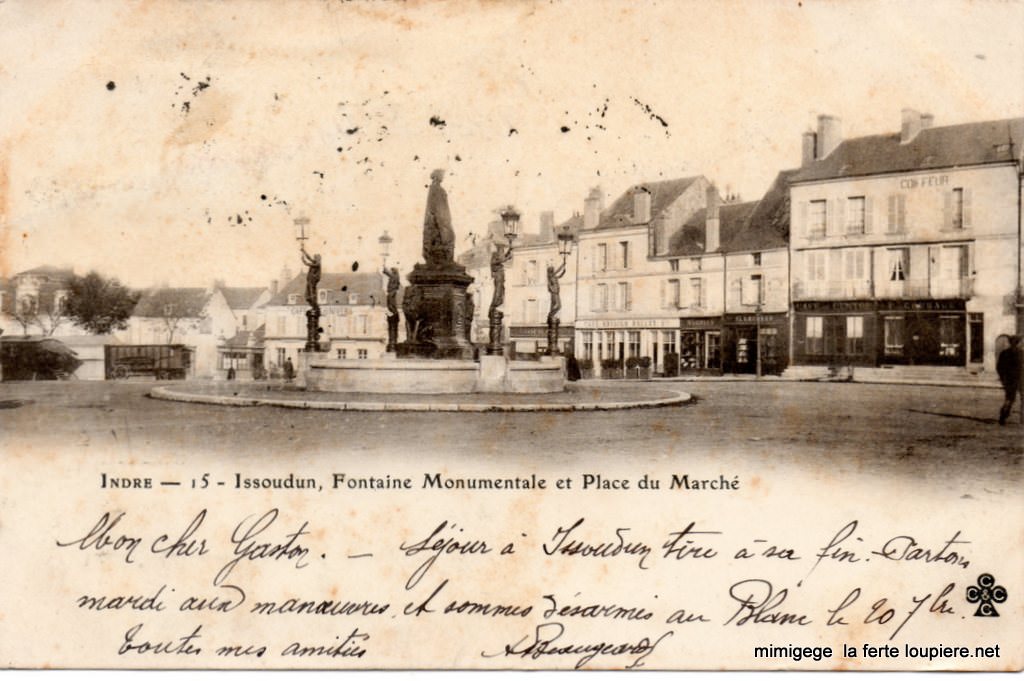 COIFFEUR
INDRE — 15 - Issoudun, Fontaine Monumentale et Place du Marché
Mon cher Gaston. — Séjour à Issoudun tire à sa fin. Partons
mardi aux manœuvres et sommes désarmés au Blanc le 20 7bre.
Toutes mes amitiés
CCCC
mimigege la ferte loupiere.net